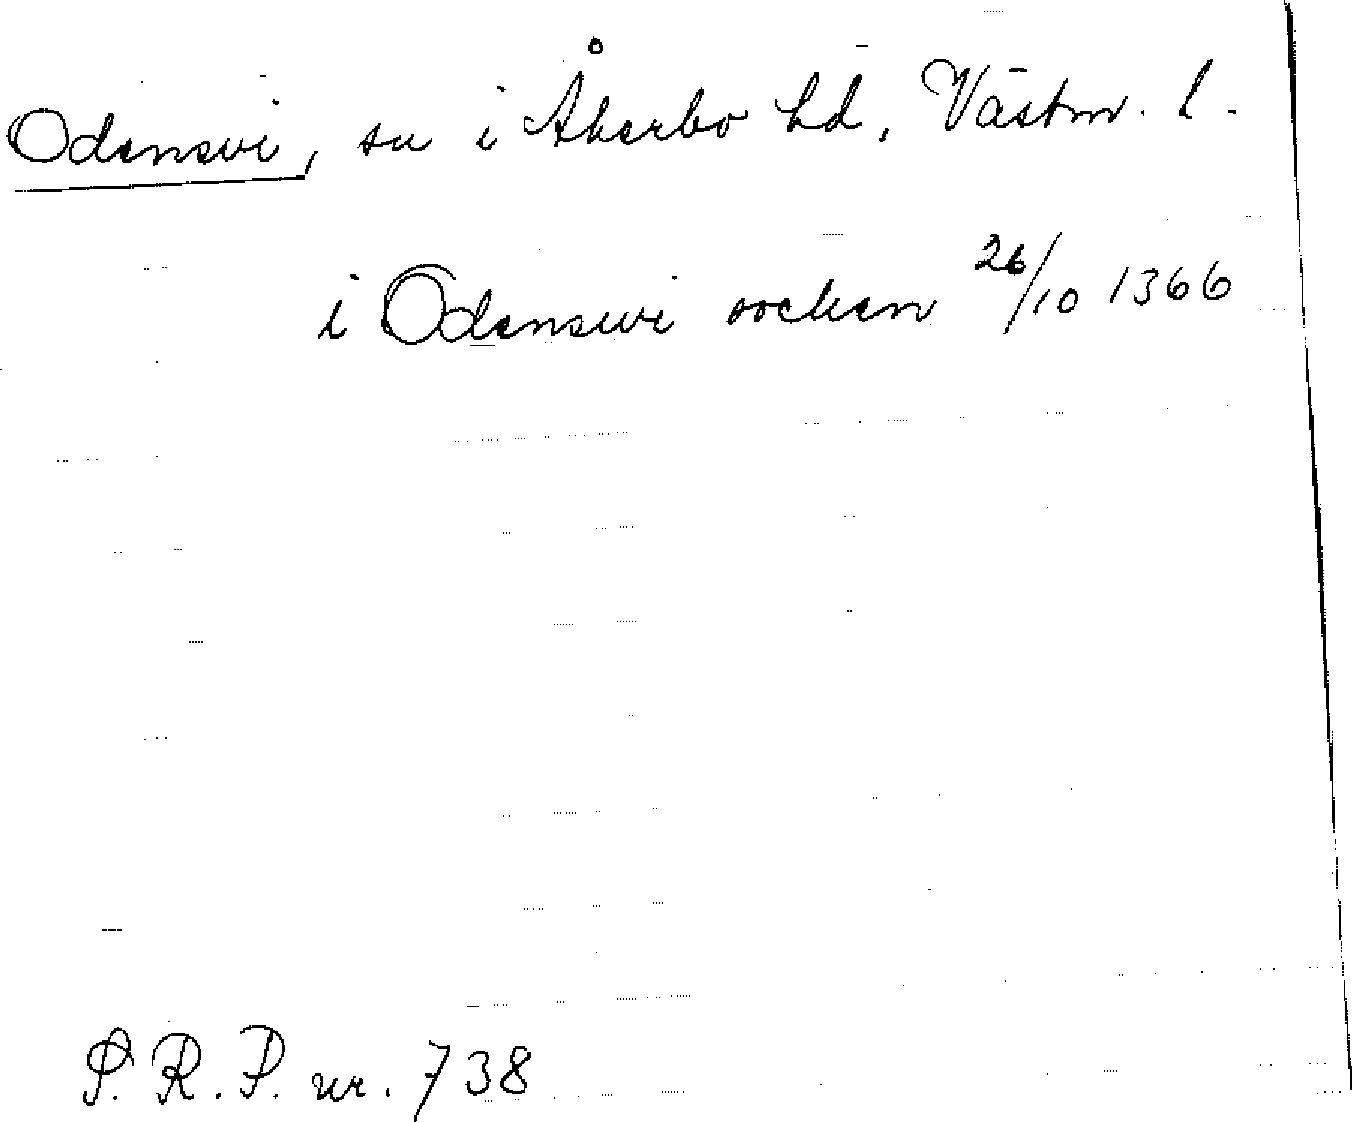 Odensvi, sn i Åkerbo hd, Västm. l.
i Odenswi socken 26/10 1366
S.R.P. nr. 738